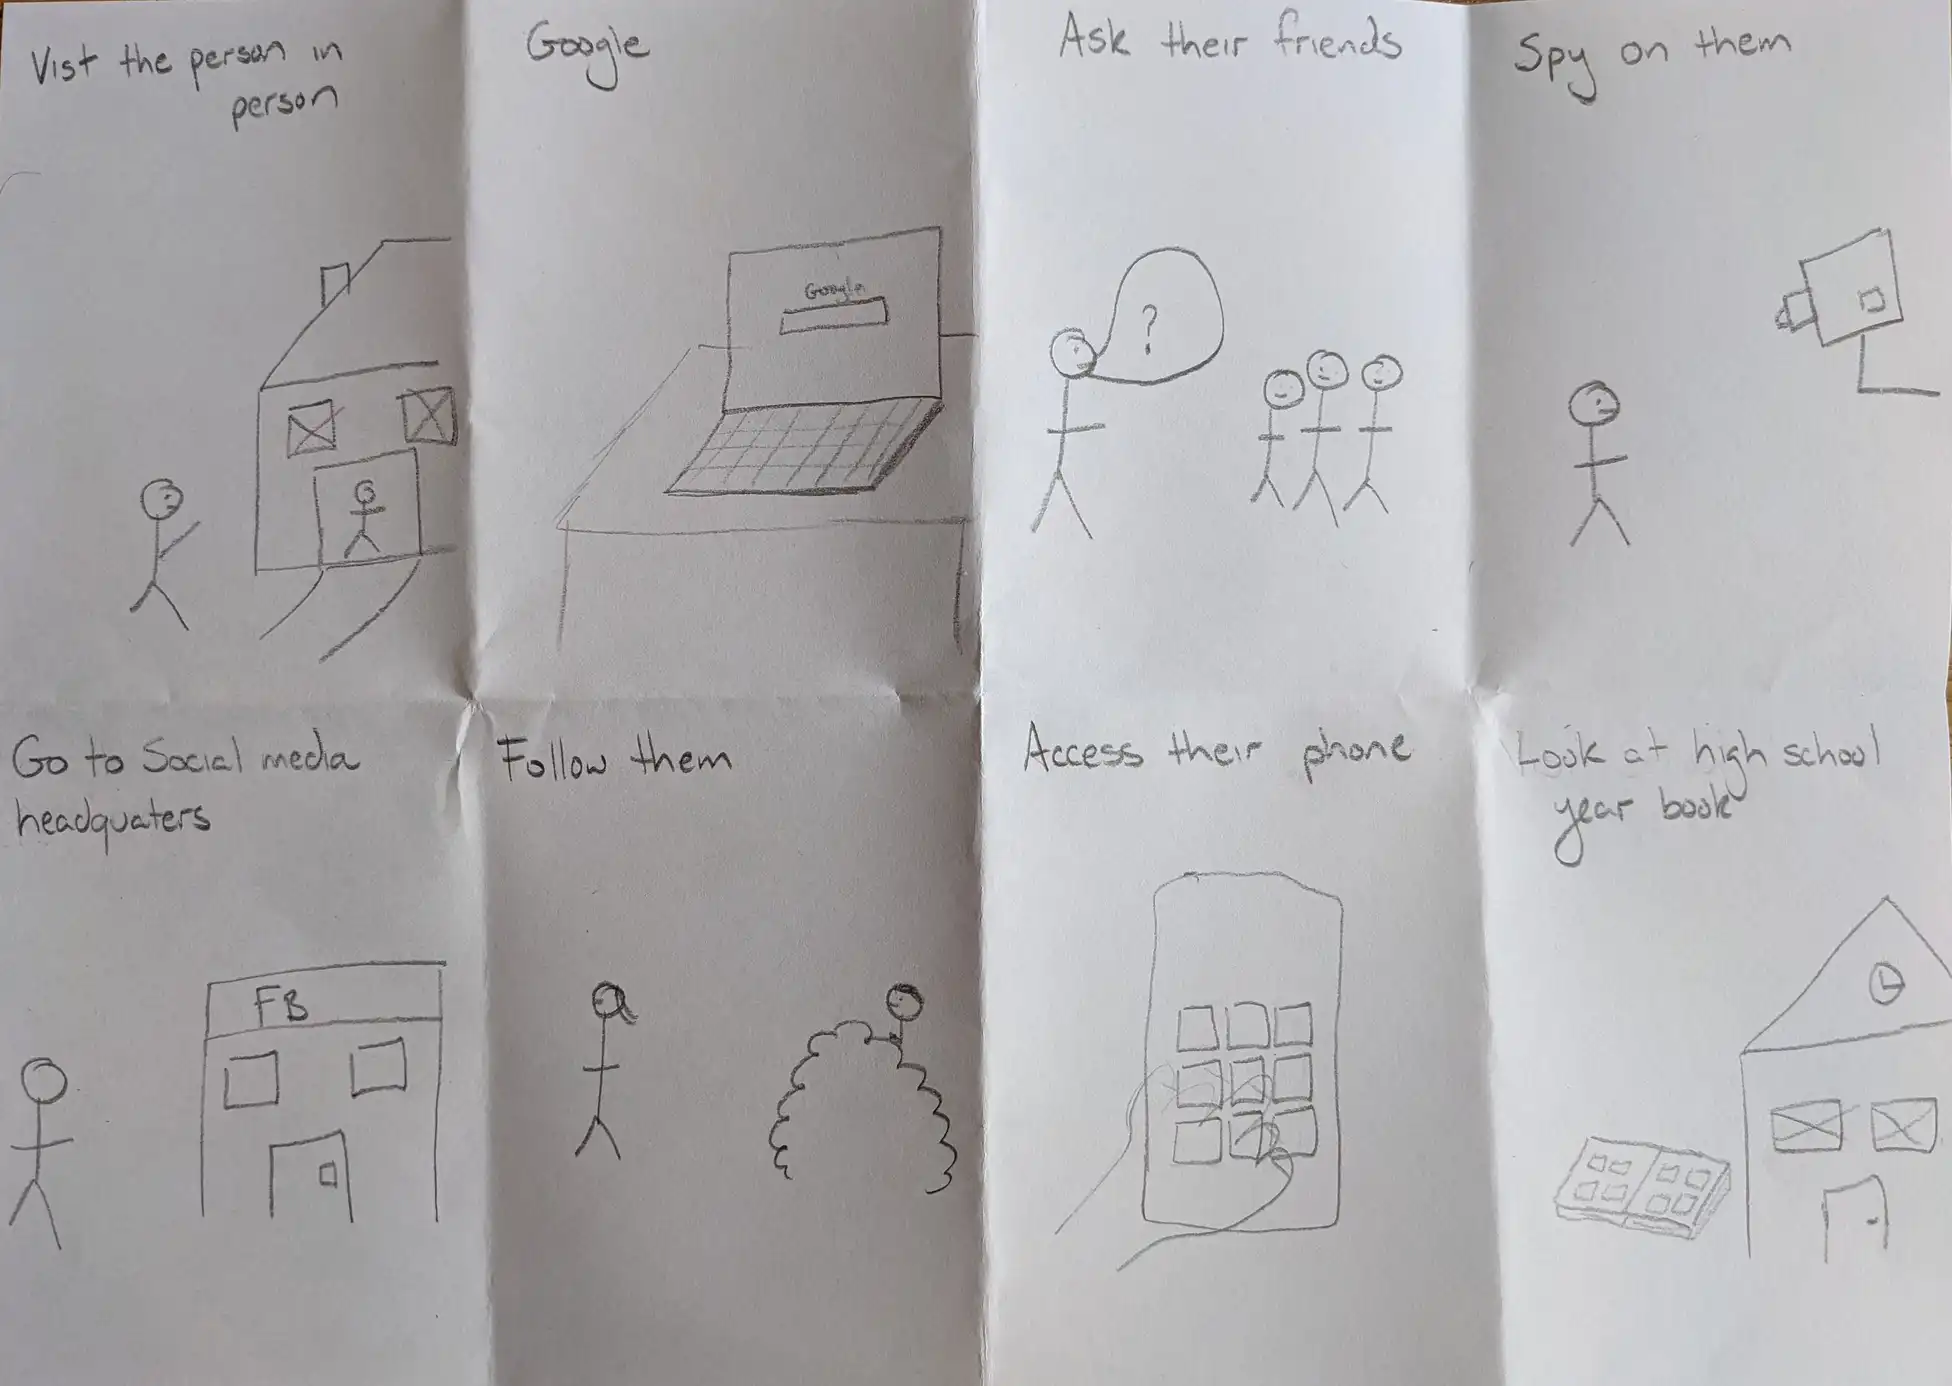 Vist the person in
person
Google
Google
Ask their friends
?
Spy on them
Go to Social media
headquaters
FB
Follow them
Access their phone
Look at high school
year book